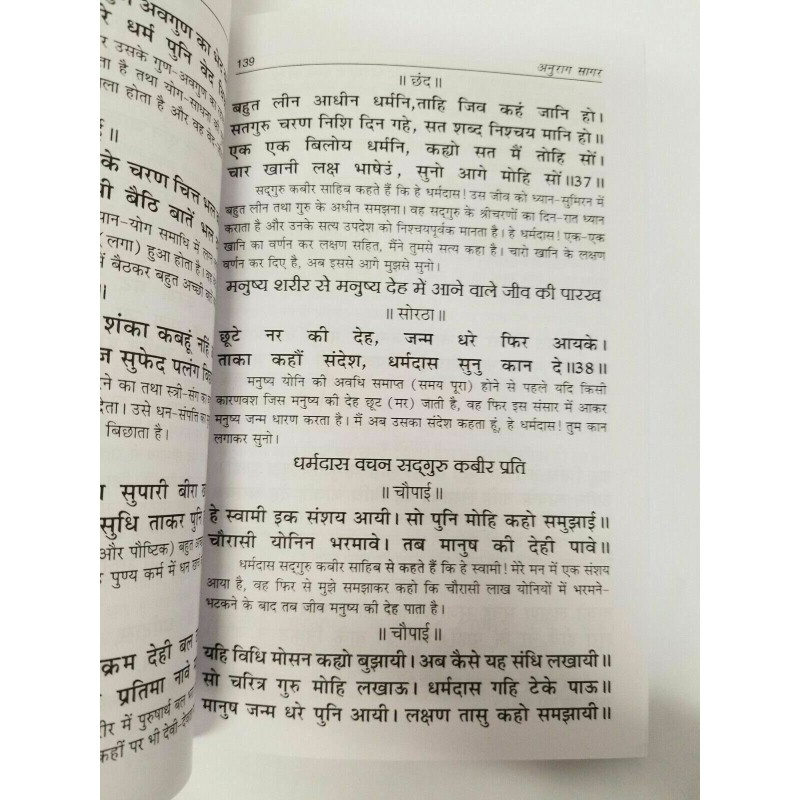 अवगुण का
रे धर्म पुनि वेद
र उसके गुण-अवगुण का
ता है तथा योग-साधना
ला होता है और वह वेद-
॥
के चरण चित्त भल
वी बैठि बातें भल
ध्यान-योग समाधि में
(लगा) हुआ होता है। वह
में बैठकर बहुत अच्छी
॥
शंका कबहूं नहिं
ज सुफेद पलंग
रने का तथा स्त्री-संग का
देता। उसे धन-संपत्ति का
बिछाता है।
सुपारी बीरा
सुधि ताकर पुनि
और पौष्टिक) बहुत
र पुण्य कर्म में धन
क्रम देही बल
प्रतिमा नावे
रीर में पुरुषार्थ बल
कहीं पर भी देवी-देवता
139 अनुराग सागर
॥ छंद ॥
बहुत लीन आधीन धर्मनि,ताहि जिव कहं जानि हो।
सतगुरु चरण निशि दिन गहे, सत शब्द निश्चय मानि हो॥
एक एक बिलोय धर्मनि, कह्यो सत मैं तोहि सों।
चार खानी लक्ष भाषेउं, सुनो आगे मोहि सों॥37॥
सद्गुरु कबीर साहिब कहते हैं कि हे धर्मदास! उस जीव को ध्यान-सुमिरन में
बहुत लीन तथा गुरु के अधीन समझना। वह सद्गुरु के श्रीचरणों का दिन-रात ध्यान
कराता है और उनके सत्य उपदेश को निश्चयपूर्वक मानता है। हे धर्मदास! एक-एक
खानि का वर्णन कर लक्षण सहित, मैंने तुमसे सत्य कहा है। चारो खानि के लक्षण
वर्णन कर दिए है, अब इससे आगे मुझसे सुनो।
मनुष्य शरीर से मनुष्य देह में आने वाले जीव की पारख
॥ सोरठा ॥
छूटे नर की देह, जन्म धरे फिर आयके।
ताका कहौं संदेश, धर्मदास सुनु कान दे॥38॥
मनुष्य योनि की अवधि समाप्त (समय पूरा) होने से पहले यदि किसी
कारणवश जिस मनुष्य की देह छूट (मर) जाती है, वह फिर इस संसार में आकर
मनुष्य जन्म धारण करता है। मैं अब उसका संदेश कहता हूं, हे धर्मदास! तुम कान
लगाकर सुनो।
धर्मदास वचन सद्गुरु कबीर प्रति
॥ चौपाई ॥
हे स्वामी इक संशय आयी। सो पुनि मोहि कहो समुझाई॥
चौरासी योनिन भरमावे। तब मानुष की देही पावे॥
धर्मदास सद्गुरु कबीर साहिब से कहते हैं कि हे स्वामी! मेरे मन में एक संशय
आया है, वह फिर से मुझे समझाकर कहो कि चौरासी लाख योनियों में भरमने-
भटकने के बाद तब जीव मनुष्य की देह पाता है।
॥ चौपाई ॥
यहि विधि मोसन कह्यो बुझायी। अब कैसे यह संधि लखायी॥
सो चरित्र गुरु मोहि लखाऊ। धर्मदास गहि टेके पाऊ॥
मानुष जन्म धरे पुनि आयी। लक्षण तासु कहो समझायी॥